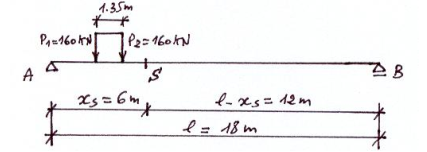 1.35m
P1=160kN P2=160kN
A S B
xs = 6m l - xs = 12m
l = 18m